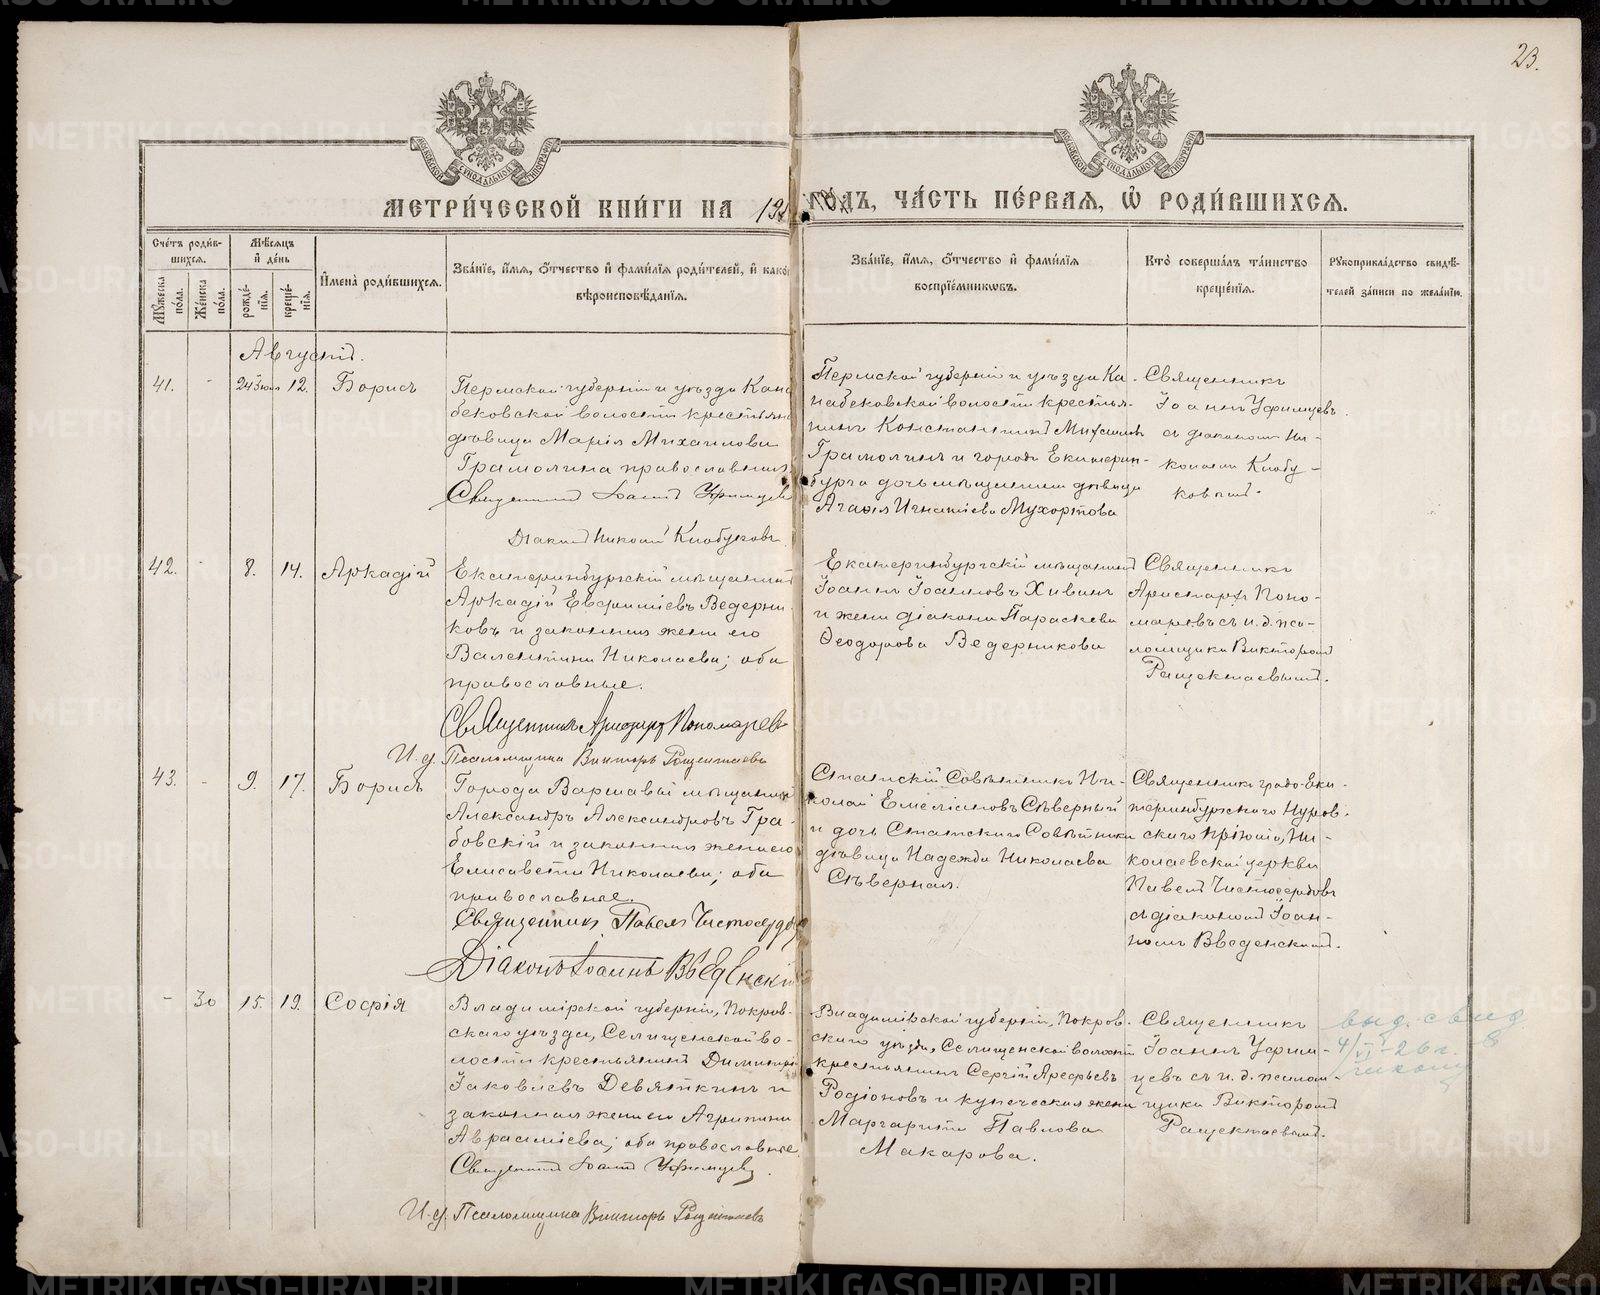 23.
МОСКОВСКОЙ СѴНОДАЛЬНОЙ ТИПОГРАФІИ
МОСКОВСКОЙ СѴНОДАЛЬНОЙ ТИПОГРАФІИ
МЕТРИ́ЧЕСКОЙ КНИ́ГИ НА 19 ГО́ДЪ, ЧА́СТЬ ПЕ́РВАЯ, Ѽ РОДИ́ВШИХСЯ.
Сче́тъ роди́в-
шихся.
Мѣ́сяцъ
и҆ де́нь
Мꙋ́жеска по́ла.
Же́нска по́ла.
рожде́-нїя.
креще́-нїя.
И҆мена̀ роди́вшихся.
Зва́нїе, и҆́мя, ѻ҆́тчество и҆ фами́лїя роди́телей, и҆ како́
вѣроисповѣ́данїя.
Зва́нїе, и҆́мя, ѻ҆́тчество и҆ фами́лїя
воспрїе́мникѡвъ.
Кто̀ соверша́лъ та́инство
креще́нїя.
Рꙋкоприкла́дство свидѣ́-
телей за́писи по жела́нїю.
Августъ.
41. - 24 12. Борисъ
Пермской губерніи и уѣзда Кана
бековской волости крестьян
дѣвица Марія Михаилова
Грамолина православная
Священникъ Іоаннъ Уфимцевъ
Діаконъ Николай Клобуковъ
Пермской губерніи и уѣзда Ка-
набековской волости крестья-
нинъ Константинъ Михаиловъ
Грамолинъ и города Екатерин-
бурга дочь мѣщанина дѣвица
Агафія Игнатіева Мухортова
Священникъ
Іоаннъ Уфимцевъ
съ діакономъ Ни-
колаемъ Клобу-
ковымъ.
42. - 8. 14. Аркадій
Екатеринбургскій мѣщанинъ
Аркадій Евфиміевъ Ведерни-
ковъ и законная жена его
Валентина Николаева; оба
православные.
Священникъ Аристархъ Пономаревъ
И. д. Псаломщика Викторъ Ращектаевъ
Екатеринбургскій мѣщанинъ
Іоаннъ Іоанновъ Хивинъ
и жена діакона Параскева
Ѳеодорова Ведерникова
Священникъ
Аристархъ Поно-
маревъ съ и. д. пса-
ломщика Викторомъ
Ращектаевымъ.
43. - 9. 17. Борисъ
Города Варшавы мѣщанинъ
Александръ Александровъ Гра-
бовскій и законная жена его
Елисавета Николаева; оба
православные.
Священникъ Павелъ Чистосердовъ
Діаконъ Іоаннъ Введенскій
Статскій Совѣтникъ Ни-
колай Емеліановъ Сѣверный
и дочь Статскаго Совѣтника
дѣвица Надежда Николаева
Сѣверная.
Священникъ градо-Ека-
теринбургскаго Нуров-
скаго пріюта, Ни-
колаевской церкви
Павелъ Чистосердовъ
съ діакономъ Іоан-
номъ Введенскимъ.
- 30 15. 19. Софія
Владимірской губерніи, Покров-
скаго уѣзда, Селищенской во-
лости крестьянинъ Димитрій
Іаковлевъ Девяткинъ и
законная жена его Агрипина
Аврамміева; оба православные
Священникъ Іоаннъ Уфимцевъ.
И. д. Псаломщика Викторъ Ращектаевъ
Владимірской губерніи, Покров-
скаго уѣзда, Селищенской волости
крестьянинъ Сергій Арефьевъ
Родіоновъ и купеческая жена
Маргарита Павлова
Макарова.
Священникъ
Іоаннъ Уфим-
цевъ съ и. д. псалом-
щика Викторомъ
Ращектаевымъ.
выд. свид
4/VI-26 г.